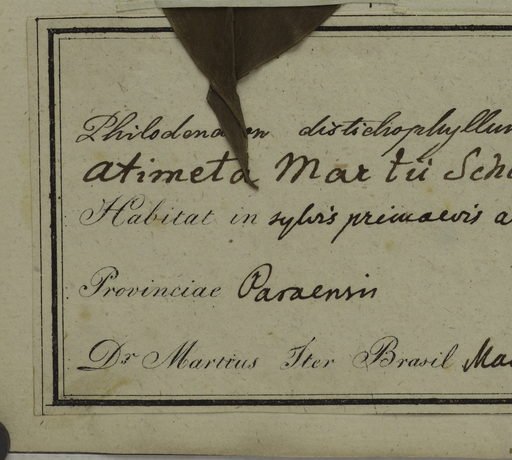 Philodendron distichophyllum
atimeta Martii Scho
Habitat in sylvis primaevis a
Provinciae Paraensis
Dr Martius Iter Brasil Mac